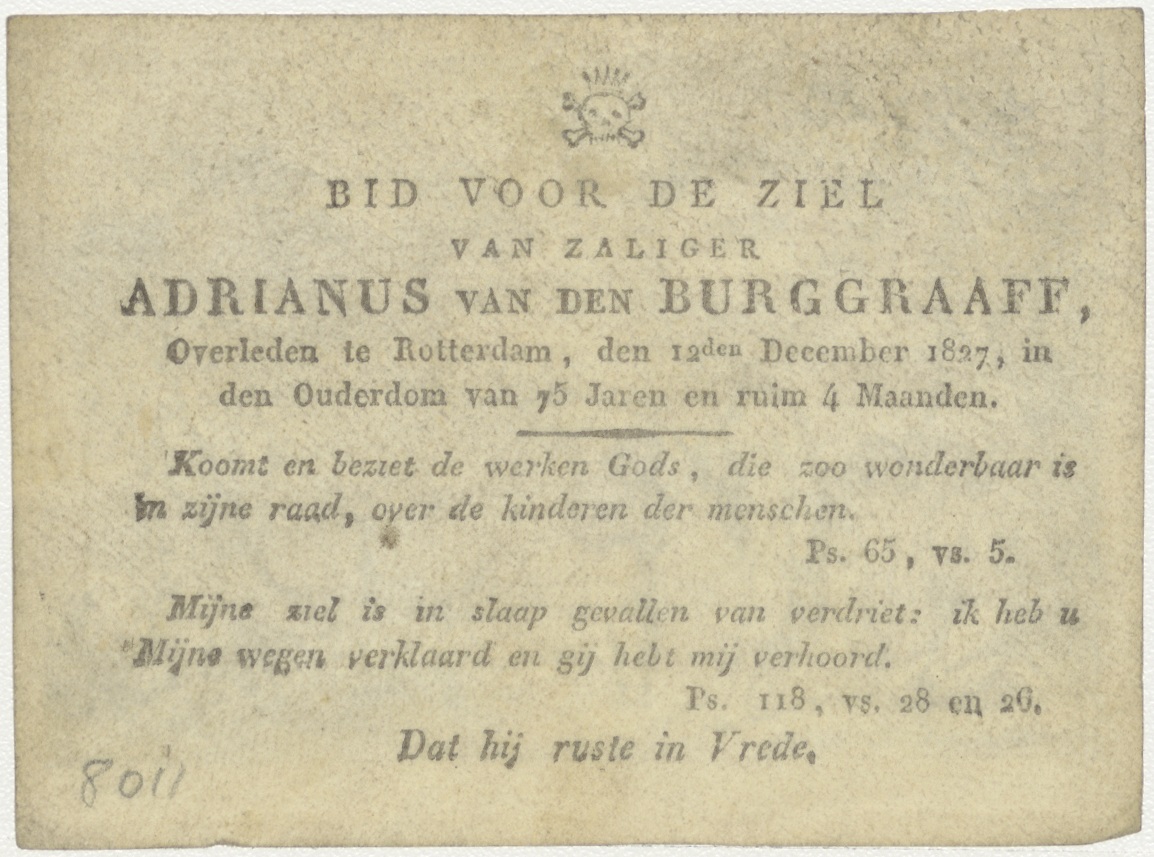 BID VOOR DE ZIEL
VAN ZALIGER
ADRIANUS VAN DEN BURGGRAAFF,
Overleden te Rotterdam, den 12den December 1827, in
den Ouderdom van 75 Jaren en ruim 4 Maanden.
Koomt en beziet de werken Gods, die zoo wonderbaar is
in zijne raad, over de kinderen der menschen.
Ps. 65, vs. 5.
Mijne ziel is in slaap gevallen van verdriet: ik heb u
Mijne wegen verklaard en gij hebt mij verhoord.
Ps. 118, vs. 28 en 26.
Dat hij ruste in Vrede.
8011